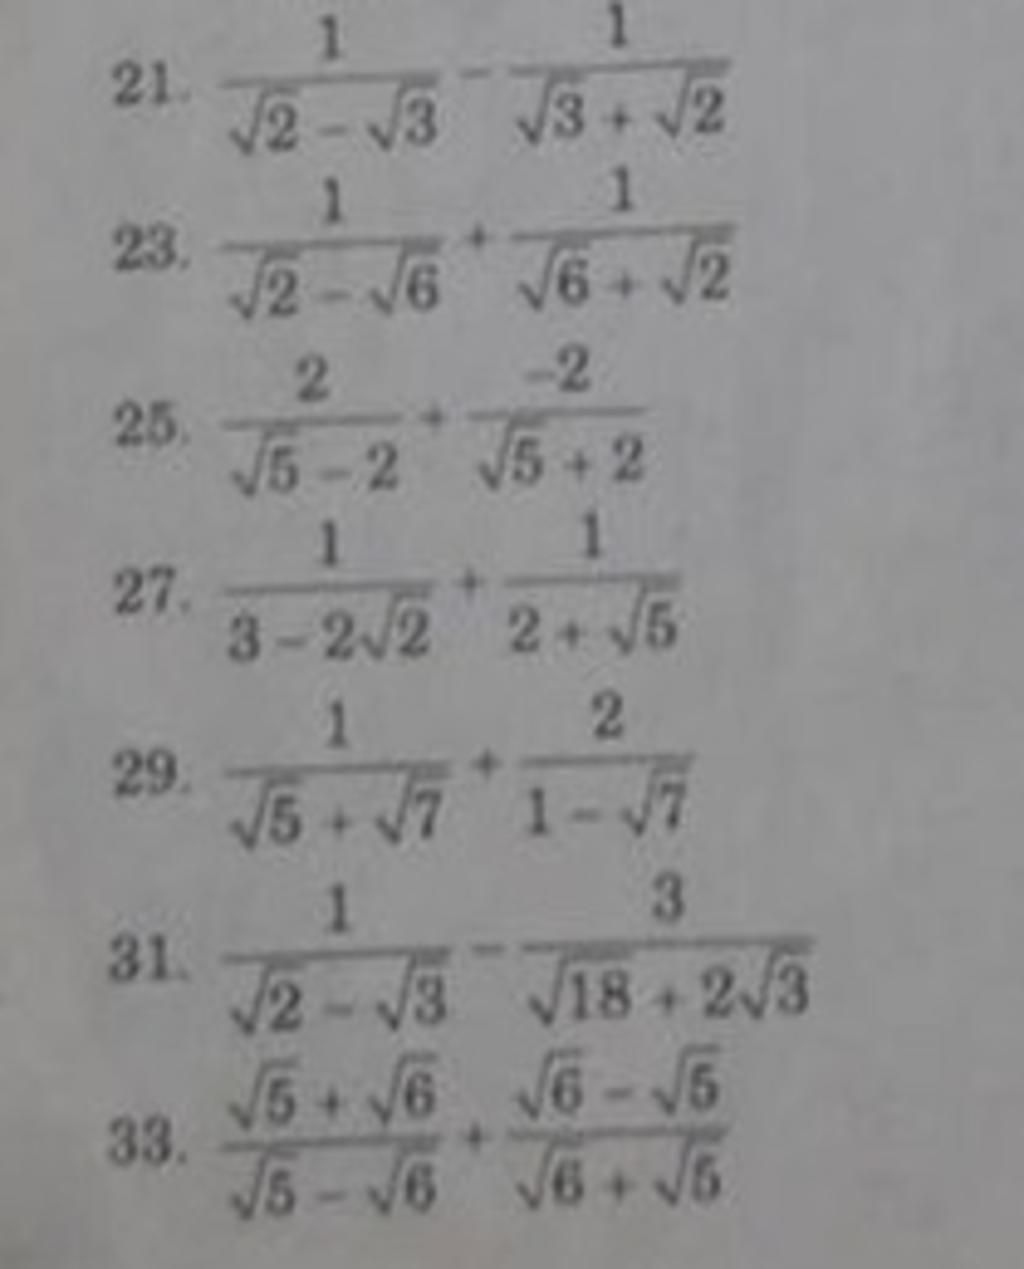 21. \frac{1}{\sqrt{2} - \sqrt{3}} - \frac{1}{\sqrt{3} + \sqrt{2}}
23. \frac{1}{\sqrt{2} - \sqrt{6}} + \frac{1}{\sqrt{6} + \sqrt{2}}
25. \frac{2}{\sqrt{5} - 2} + \frac{-2}{\sqrt{5} + 2}
27. \frac{1}{3 - 2\sqrt{2}} + \frac{1}{2 + \sqrt{5}}
29. \frac{1}{\sqrt{5} + \sqrt{7}} + \frac{2}{1 - \sqrt{7}}
31. \frac{1}{\sqrt{2} - \sqrt{3}} - \frac{3}{\sqrt{18} + 2\sqrt{3}}
33. \frac{\sqrt{5} + \sqrt{6}}{\sqrt{5} - \sqrt{6}} + \frac{\sqrt{6} - \sqrt{5}}{\sqrt{6} + \sqrt{5}}